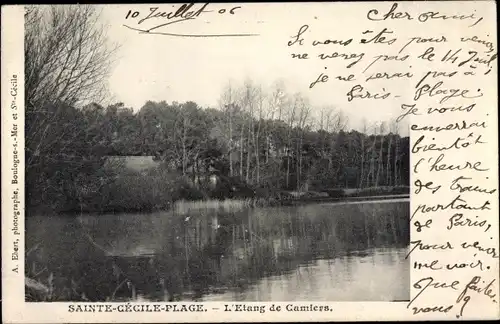 10 Juillet 06
Cher ami,
Si vous êtes pour venir,
ne venez pas le 14 Juillet
je ne serai pas à Ste
Paris-Plage.
Je vous
enverrai
bientôt
l'heure
des trams
partant
de Paris,
pour venir
me voir.
Que faites
vous ?
A. Ebert, photographe, Boulogne-s.-Mer et Ste-Cécile
SAINTE-CÉCILE-PLAGE. - L'Etang de Camiers.